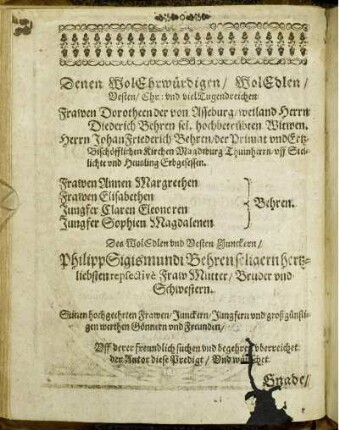 Denen WolEhrwürdigen/ WolEdlen/
Vesten/ Ehr: und vielTugendreichen
Frawen Dorotheen der von Asseburg/ weiland Herrn
Diederich Behren sel. hochbetrübten Witwen.
Herrn Johan Friederich Behren/ der Primat und Ertz-
Bischöfflichen Kirchen Magdeburg Thumherrn/ uff
lichte und Heusling Erbgesessen.
Frawen Annen Margrethen
Frawen Elisabethen
Jungfer Claren Eleonoren
Jungfer Sophien Magdalenen
Behren.
Des WolEdlen und Vesten Junckern/
Philipp Sigismundi Behren seligern hertz-
liebsten respectivè Fraw Mutter/ Bruder und
Schwestern.
Seinen hochgeehrten Frawen/ Junckern/ Jungfern und groß günsti-
gen werthen Gönnern und Freunden/
Uff derer freundlich suchen und begehren überreichet
der Autor diese Predigt/ Und wünschet
Gnade/